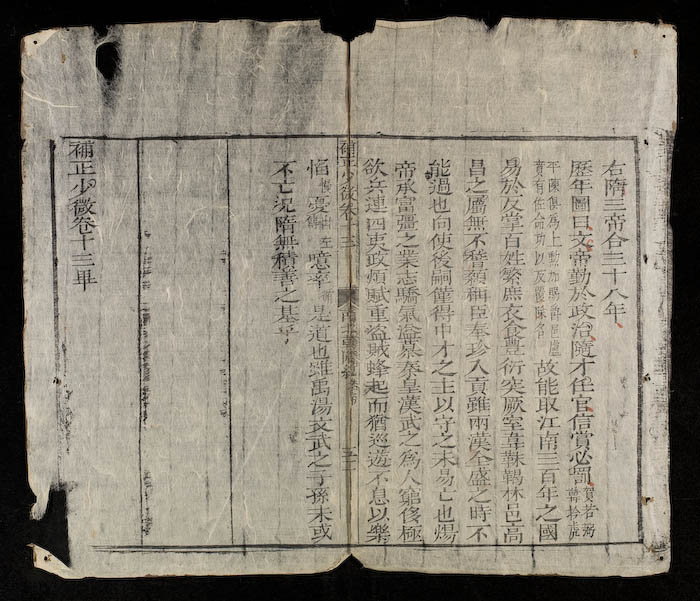 右隋三帝合三十八年
歷年圖曰文帝勤於政治隨才任官信賞必罰賀若弼韓擒虎
平陳俱為上勳加賜虞
實有佐命功以反覆除名故能取江南三百年之國
易於反掌百姓繁庶衣食豐衍突厥室韋靺鞨林邑高
昌之屬無不稽顙稱臣奉珍入貢雖兩漢全盛之時不
能過也向使後嗣僅得中才之主以守之未易亡也煬
帝承富彊之業志驕氣溢慕秦皇漢武之為人窮侈極
欲兵連四夷政煩賦重盜賊蜂起而猶巡遊不息以樂
補正少微卷十三
南北
滔憂噫率是道也雖禹湯文武之子孫未或
不亡況隋無積善之基乎
補正少微卷十三畢